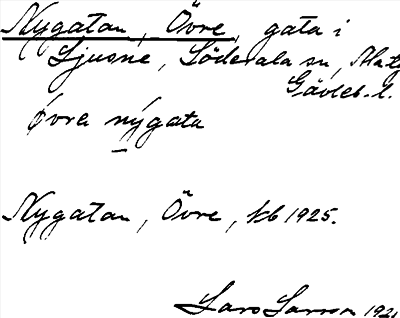 Nygatan, Övre, gata i
Ljusne, Söderala sn,
Gävleb. l.
övra nýgata
Nygatan, Övre, kb 1925.
Lars Larsson 192